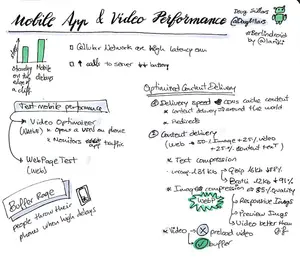 Mobile App & Video Performance
Doug Sillars
@DougSillars
#BerlinDroid
by @lariki
Standing on the edge of a cliff
Mobile delays
Cellular Network are high latency conn
↑ calls to server
Test mobile performance
Video Optimizer
(Native)
opens a World on phone
Monitors app traffic
WebPageTest
(web)
Buffer Rage
people throw their
phones when high delays
Optimized Content Delivery
① Delivery speed → CDNs cache content
content delivery around the world
Redirects
② Content delivery
(Web → 50% image + 25% video
+ 25% content text)
Text compression
Image compression → 85% quality
WebP
Responsive Images
Preview Imgs
Video better than
Video
preload video
buffer